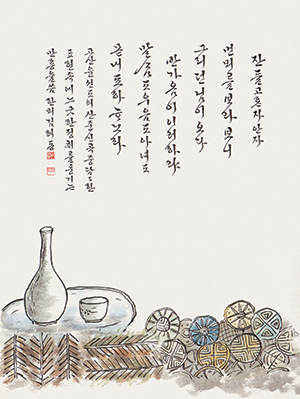 잔들고 혼자 안자
먼 뫼를 ᄇᆞ라보니
그리던 님이 오다
반가옴이 이러하랴
말ᄉᆞᆷ도 우음도 아녀도
몯내 됴하 ᄒᆞ노라
고산 윤선도의 산중신곡 중 담담한
표현속에 느긋한 정취를 풍기는
만흥을 씀